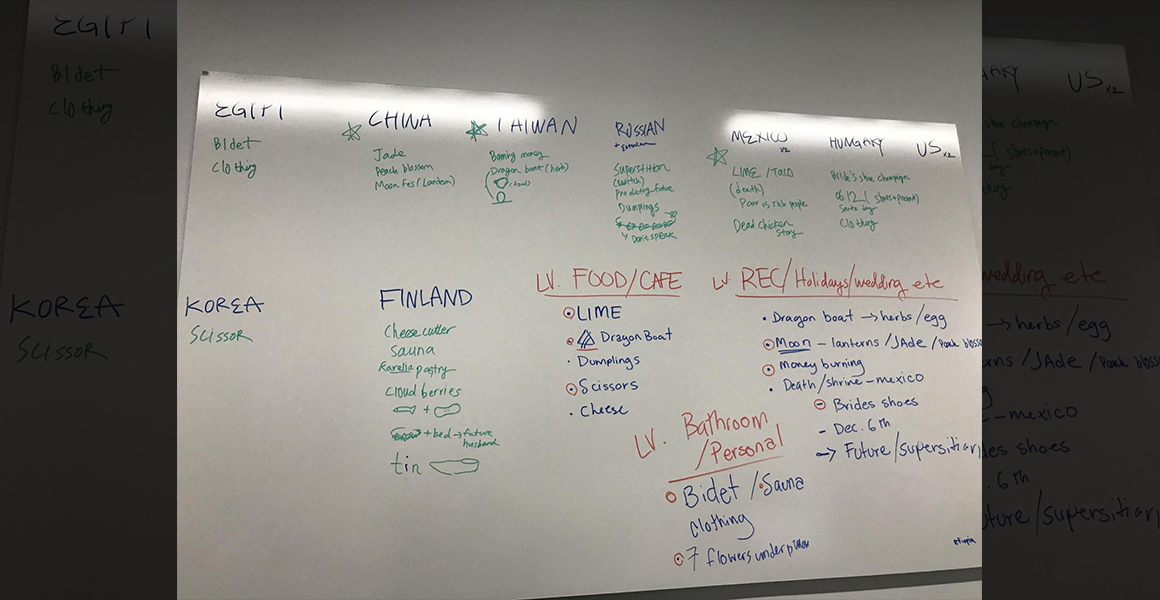 EGYPT
Bidet
Clothing
CHINA
Jade
Peach blossom
Moon Fes (Lantern)
TAIWAN
Burning money
Dragon boat (herb)
(food)
RUSSIAN
Superstition
(switch)
Predicting future
Dumplings
Don't speak
MEXICO
x2
LIME / TACO
(death)
Poor vs rich people
Dead Chicken
Story
HUNGARY
Bride's shoe champagne
0612 (shoes+present)
Santa day
Clothing
US x2
KOREA
Scissor
FINLAND
Cheese cutter
Sauna
Karelia pastry
Cloud berries
+
+ bed → future
husband
tin
LV. FOOD/CAFE
LIME
Dragon Boat
· Dumplings
Scissors
· Cheese
LV. REC/Holidays/wedding etc
· Dragon boat → herbs/egg
Moon – lanterns /JAde / Peach bloss
Money burning
· Death/shrine – mexico
Brides shoes
– Dec. 6th
→ Future/supersitian
LV. Bathroom
/Personal
Bidet / Sauna
Clothing
7 flowers under pillow